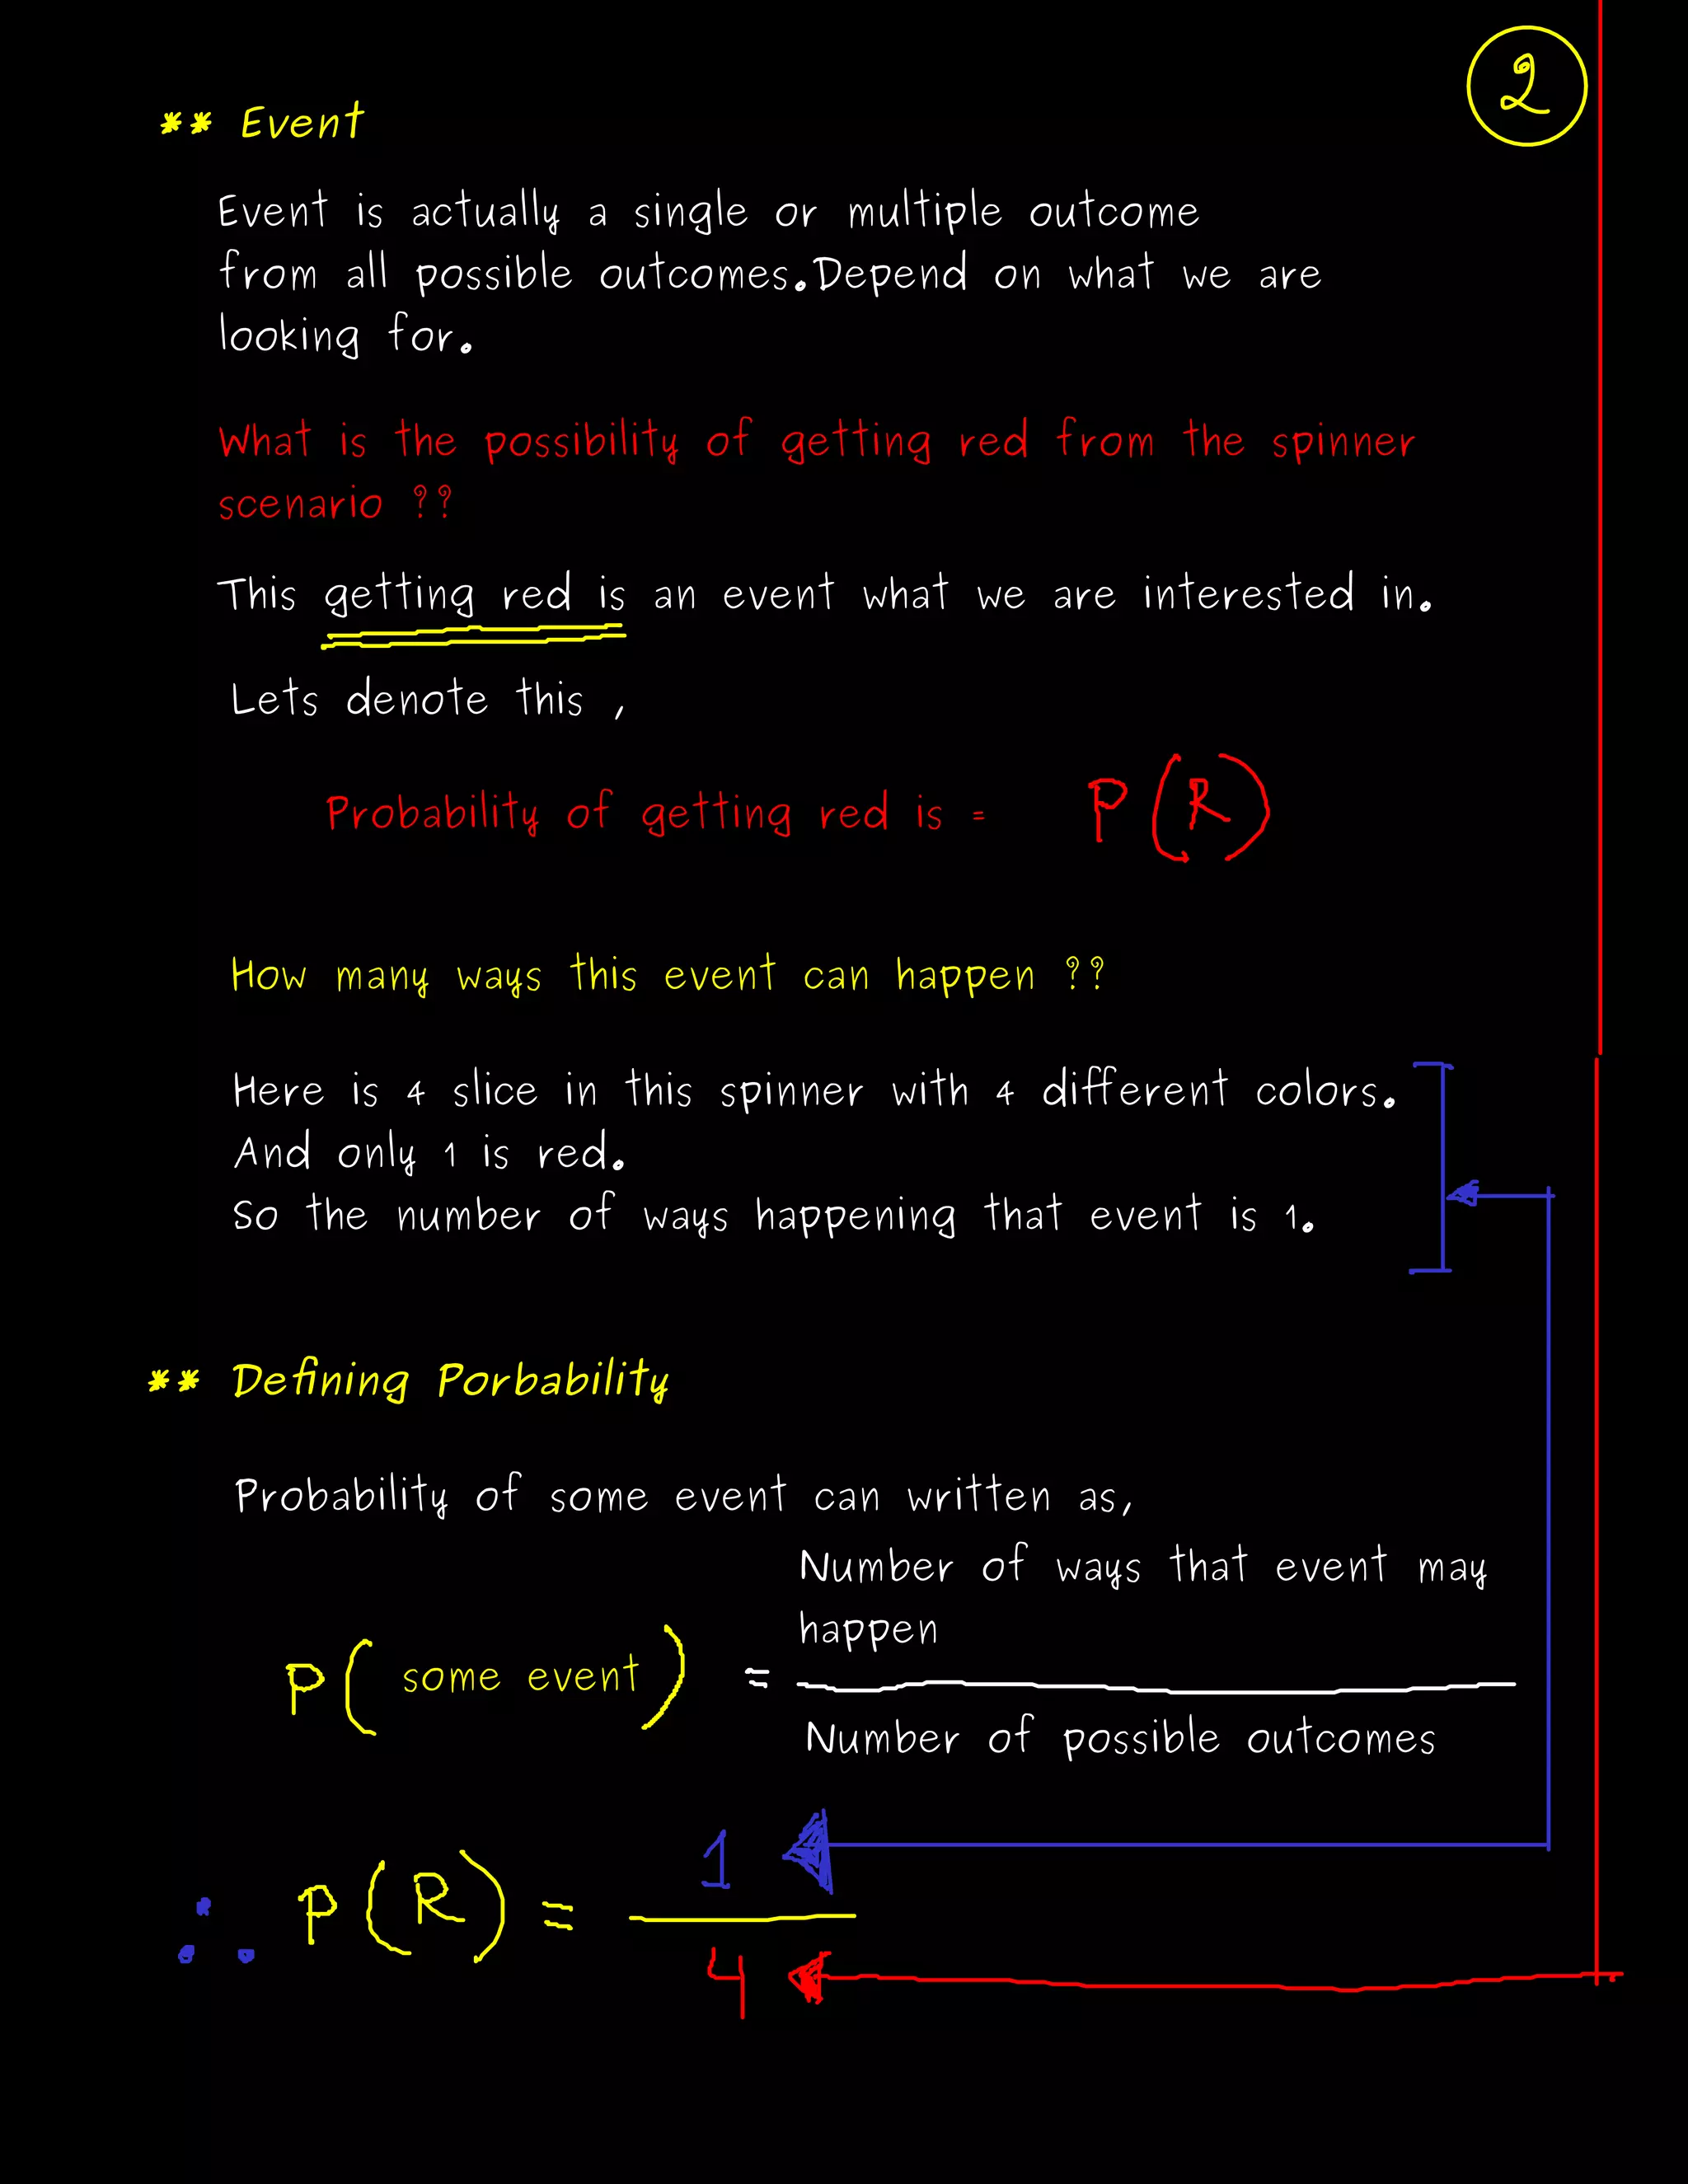 2
** Event
Event is actually a single or multiple outcome
from all possible outcomes.Depend on what we are
looking for.
What is the possibility of getting red from the spinner
scenario ??
This getting red is an event what we are interested in.
Lets denote this ,
Probability of getting red is = P(R)
How many ways this event can happen ??
Here is 4 slice in this spinner with 4 different colors.
And only 1 is red.
So the number of ways happening that event is 1.
** Defining Porbability
Probability of some event can written as,
Number of ways that event may
happen
P( some event ) =
Number of possible outcomes
1
∴ P(R) =
4